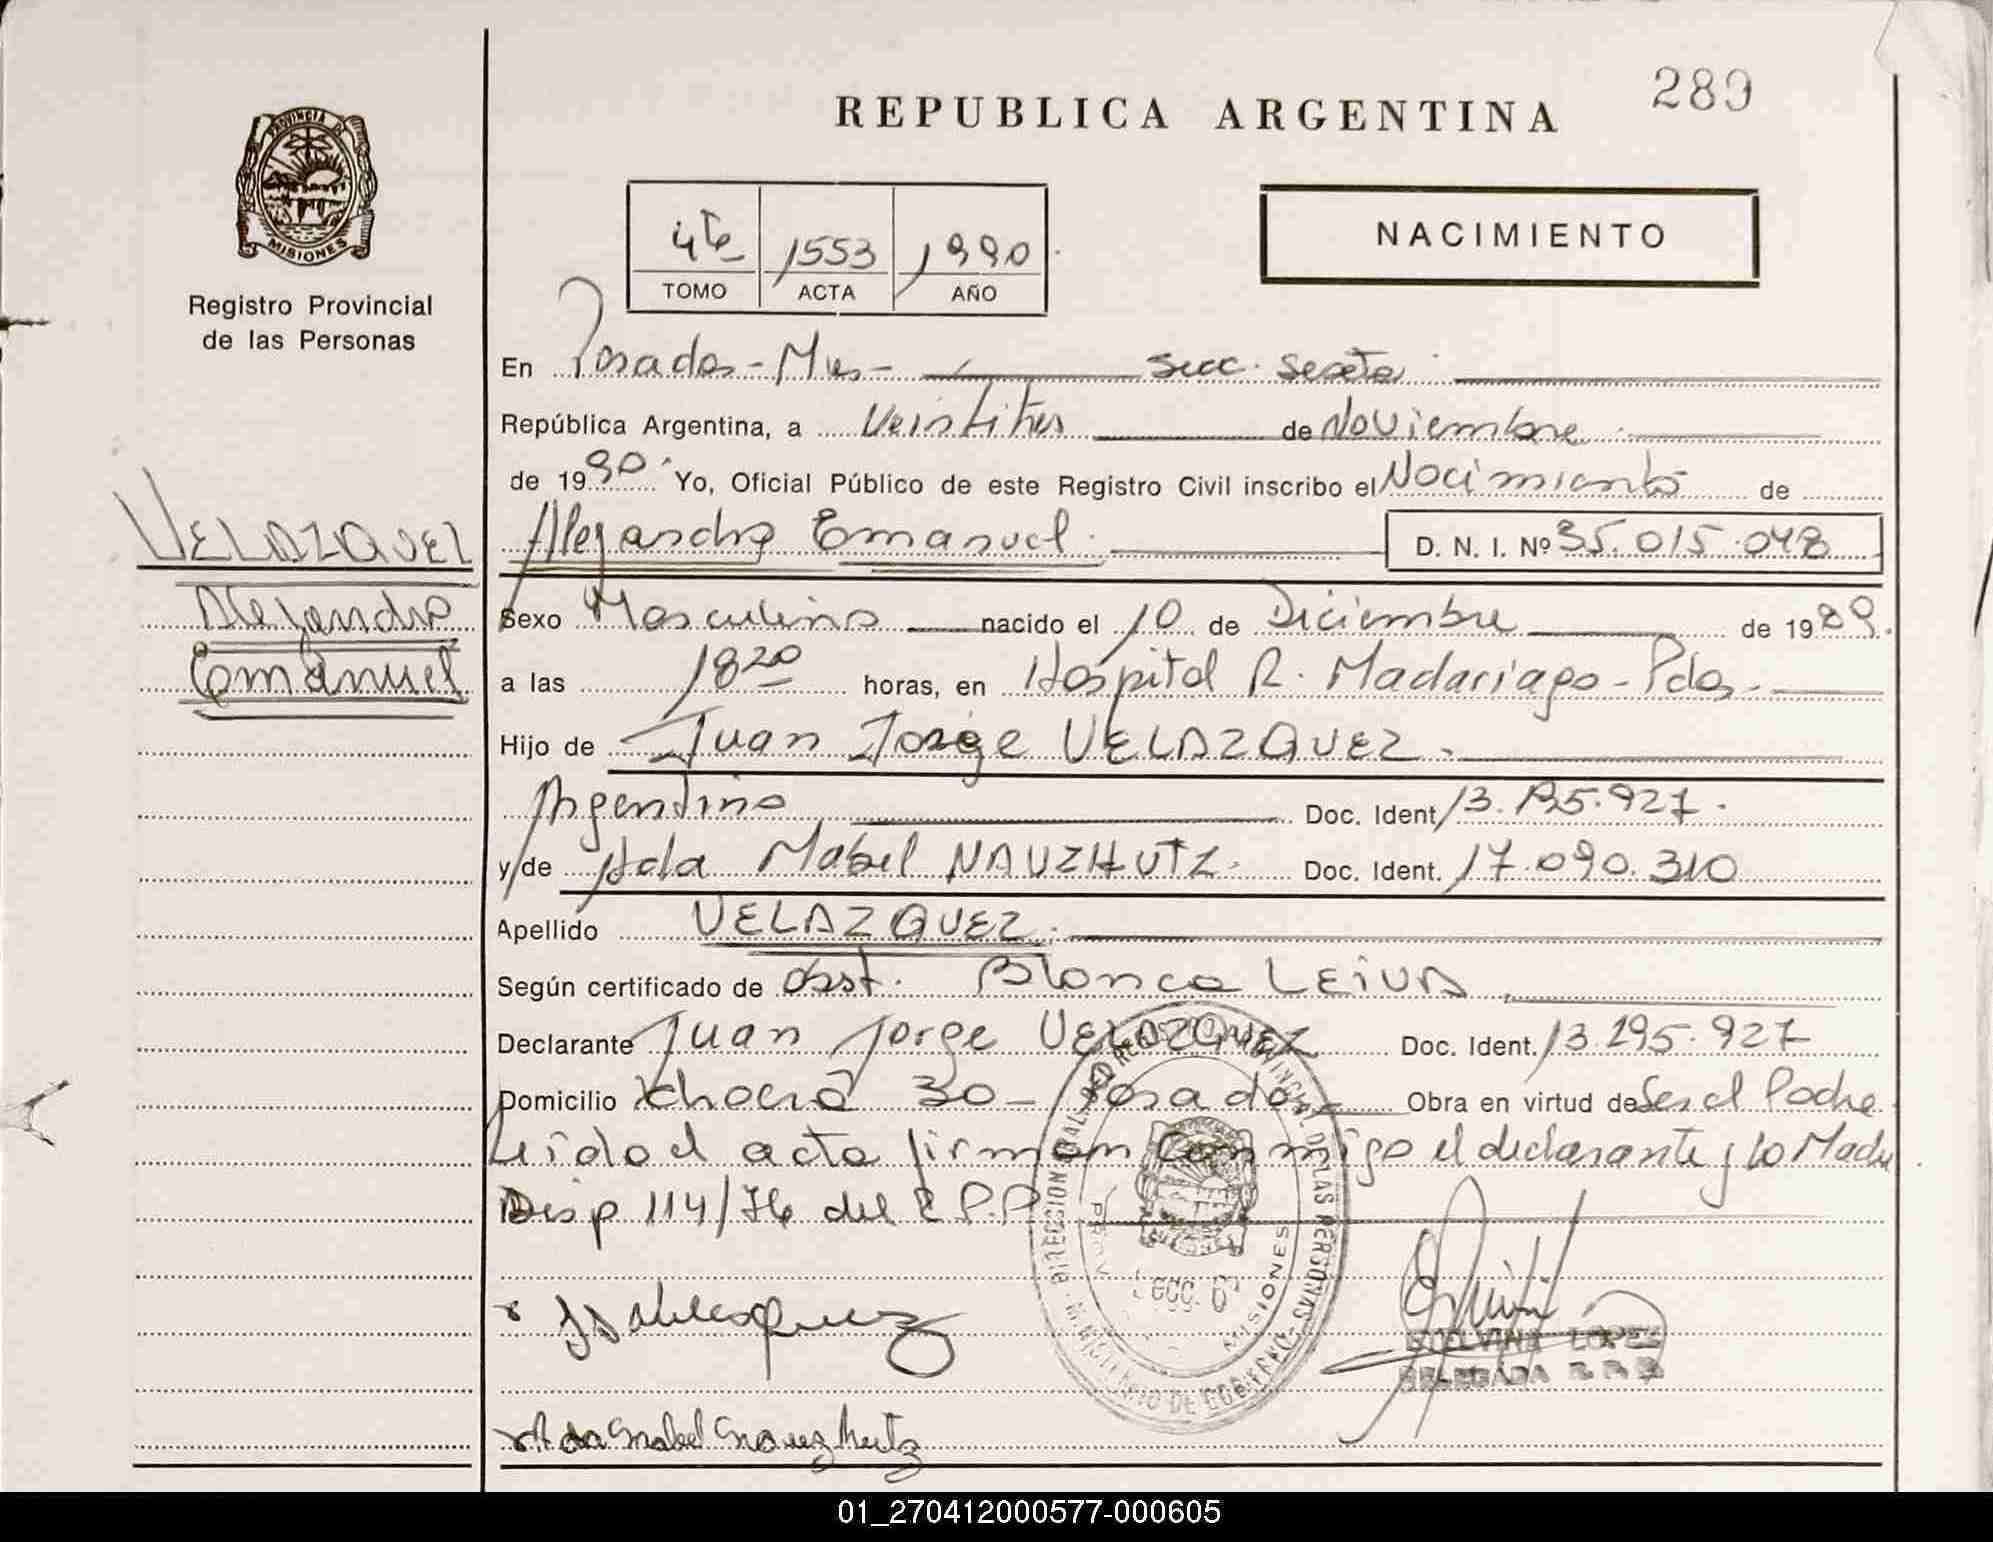 289
REPUBLICA ARGENTINA
PROVINCIA DE
MISIONES
Registro Provincial
de las Personas
4to 1553 1990
TOMO ACTA AÑO
NACIMIENTO
En Posadas - Mnes - secc. sexta
República Argentina, a Veintitres de Noviembre
de 1990. Yo, Oficial Público de este Registro Civil inscribo el Nacimiento de
VELAZQUEZ
Alejandro
Emanuel
Alejandro Emanuel. D. N. I. Nº 35.015.048
Sexo Masculino nacido el 10 de Diciembre de 1989.
a las 18 20 horas, en Hospital R. Madariaga - Pdas -
Hijo de Juan Jorge VELAZQUEZ.
Argentino Doc. Ident. 13.195.927.
y de Ada Mabel NAUZHUTZ. Doc. Ident. 17.090.310
Apellido VELAZQUEZ.
Según certificado de Obst. Blanca LEIVA
Declarante Juan Jorge VELAZQUEZ Doc. Ident. 13.195.927
Domicilio chacra 30 - Posadas Obra en virtud de Ser el Padre
Leida el acta firman conmigo el declarante y la Madre
Disp 114/76 del R.P.P
DIRECCION GRAL. DEL REGISTRO PROVINCIAL DE LAS PERSONAS
MINISTERIO DE GOBIERNO
PROV. MISIONES
LOPEZ
DELEGADA R.P.P
Ada Mabel Nauzhutz
01_270412000577-000605